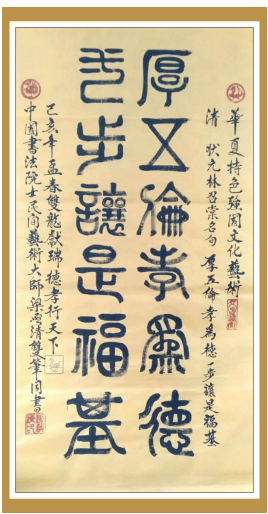 華夏特色強國文化藝術
清 狀元林召棠名句 厚五倫孝為德一步讓是福基
厚五倫孝為德
弌步讓是福基
己亥年孟春雙龍獻瑞德孝行天下
中國書法院士民間藝術大師梁清雙筆同書